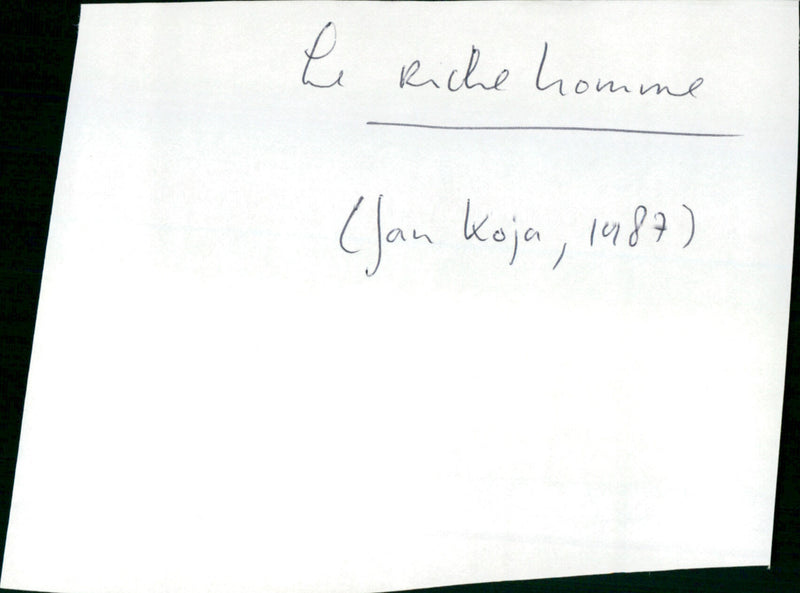 Le riche homme
(Jan Koja, 1987)